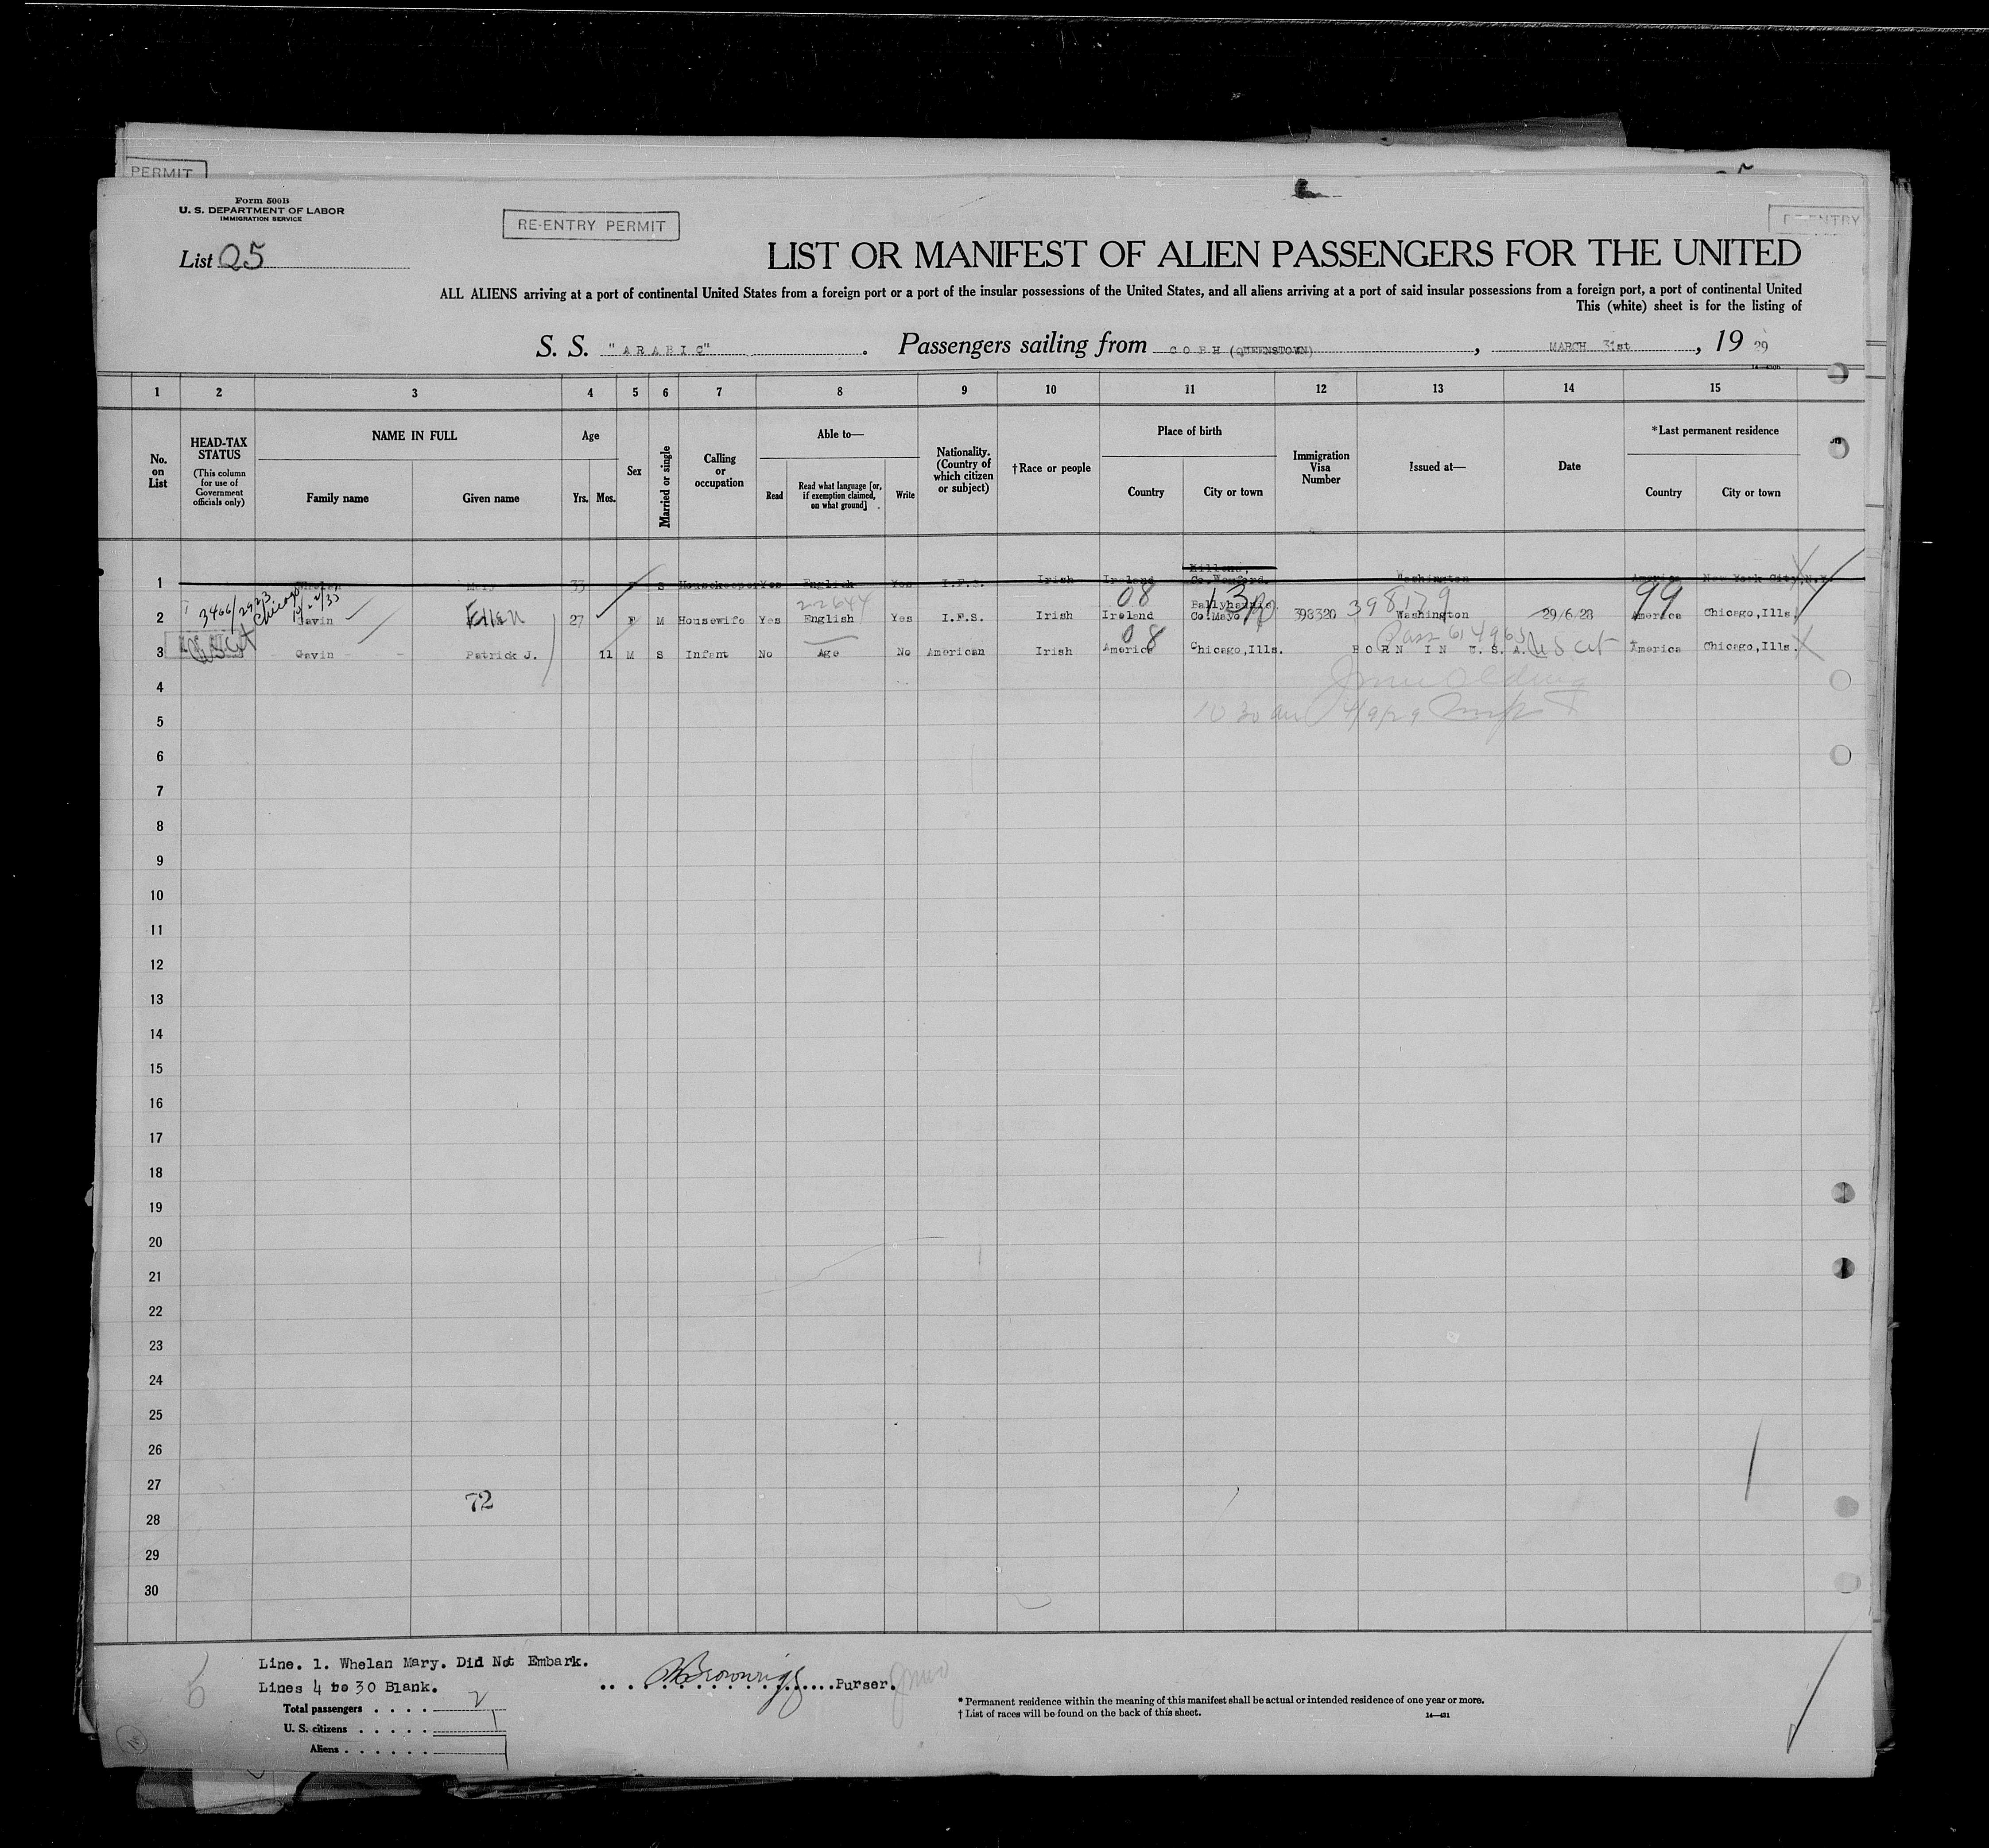 PERMIT
Form 500B
U. S. DEPARTMENT OF LABOR
IMMIGRATION SERVICE
RE-ENTRY PERMIT
RE-ENTRY
List 25
LIST OR MANIFEST OF ALIEN PASSENGERS FOR THE UNITED
ALL ALIENS arriving at a port of continental United States from a foreign port or a port of the insular possessions of the United States, and all aliens arriving at a port of said insular possessions from a foreign port, a port of continental United
This (white) sheet is for the listing of
S. S. "ARABIC" . Passengers sailing from COBH (QUEENSTOWN) , MARCH 31st , 19 29
1 2 3 4 5 6 7 8 9 10 11 12 13 14 15
No. on List
HEAD-TAX STATUS
(This column for use of Government officials only)
NAME IN FULL
Family name Given name
Age
Yrs. Mos.
Sex
Married or single
Calling or occupation
Able to—
Read
Read what language [or, if exemption claimed, on what ground]
Write
Nationality. (Country of which citizen or subject)
†Race or people
Place of birth
Country City or town
Immigration Visa Number
Issued at—
Date
*Last permanent residence
Country City or town
1 Whelan Mary 33 F S Housekeeper Yes English Yes I.F.S. Irish Ireland Co.Wexford. Washington America New York City, N.Y.
08 13 99
2 3466/2923 Chicago Gavin Ellen 27 F M Housewife Yes 22644 English Yes I.F.S. Irish Ireland Ballyhaunis Co.Mayo 398320 398179 Washington 29/6/28 America Chicago,Ills.
08
3 Gavin Patrick J. 11 M S Infant No Age No American Irish America Chicago,Ills. BORN IN U.S.A. Pass 614963 US Cit America Chicago,Ills.
4
5 10 30 am 4/9/29
6
7
8
9
10
11
12
13
14
15
16
17
18
19
20
21
22
23
24
25
26
27
72
28
29
30
Line. 1. Whelan Mary. Did Not Embark.
Lines 4 to 30 Blank.
Purser.
Total passengers 2
U. S. citizens 1
Aliens 1
* Permanent residence within the meaning of this manifest shall be actual or intended residence of one year or more.
† List of races will be found on the back of this sheet.
14—431